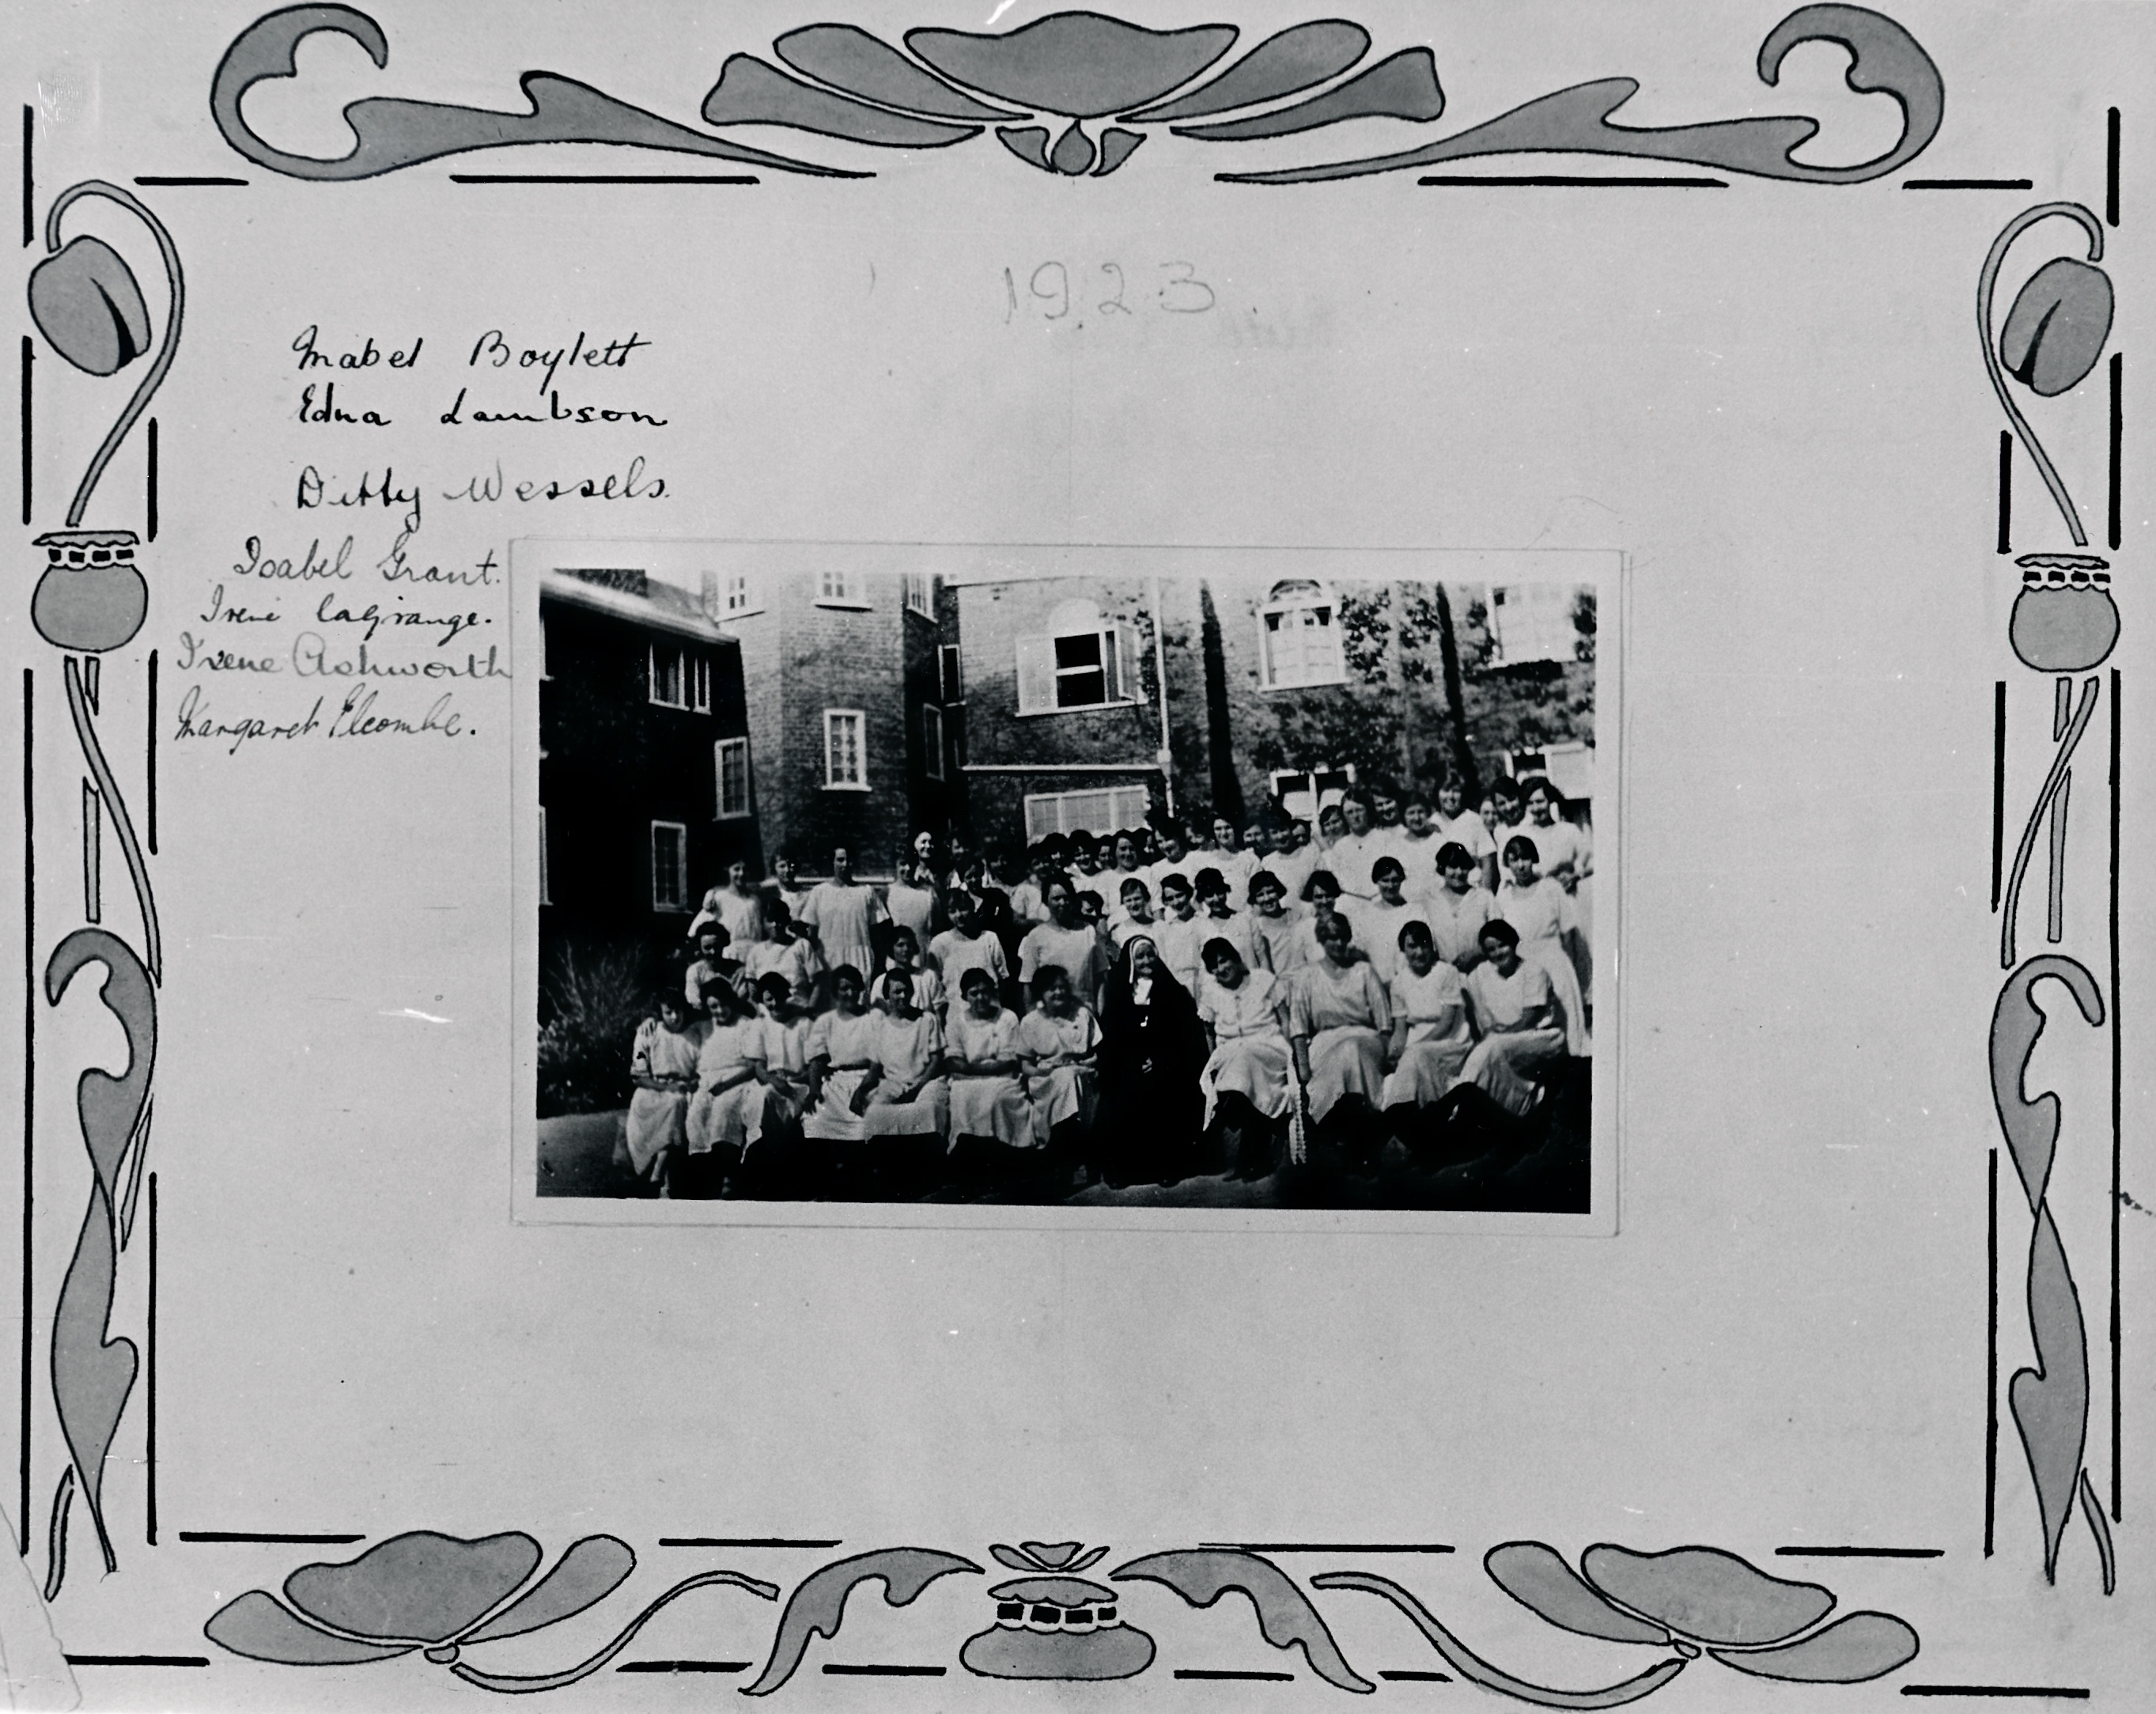 1923
Mabel Boylett
Edna Lambson
Ditty Wessels.
Isabel Grant.
Irene laGrange.
Irene Ashworth
Margaret Elcombe.